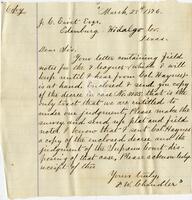 March, 25th 1876.
J. C. Everett Esqr.
Edinburg Hidalgo Co.
Texas.
Dear Sir.
Your letter containing field
notes for the 2 leagues, which I will
keep until I hear from Col. Haynes
is at hand. Enclosed I send you copy
of the decree in case No. 1083. that is the
only cost that we are entitled to
under our judgment. Please make the
survey and send up plat and field
notes. I know that I sent Col. Haynes
a copy of the enclosed decree and the
judgment of the Supreme Court dis-
posing of that case. Please acknowledge
receipt of this
Yours truly,
F. W. Chandler